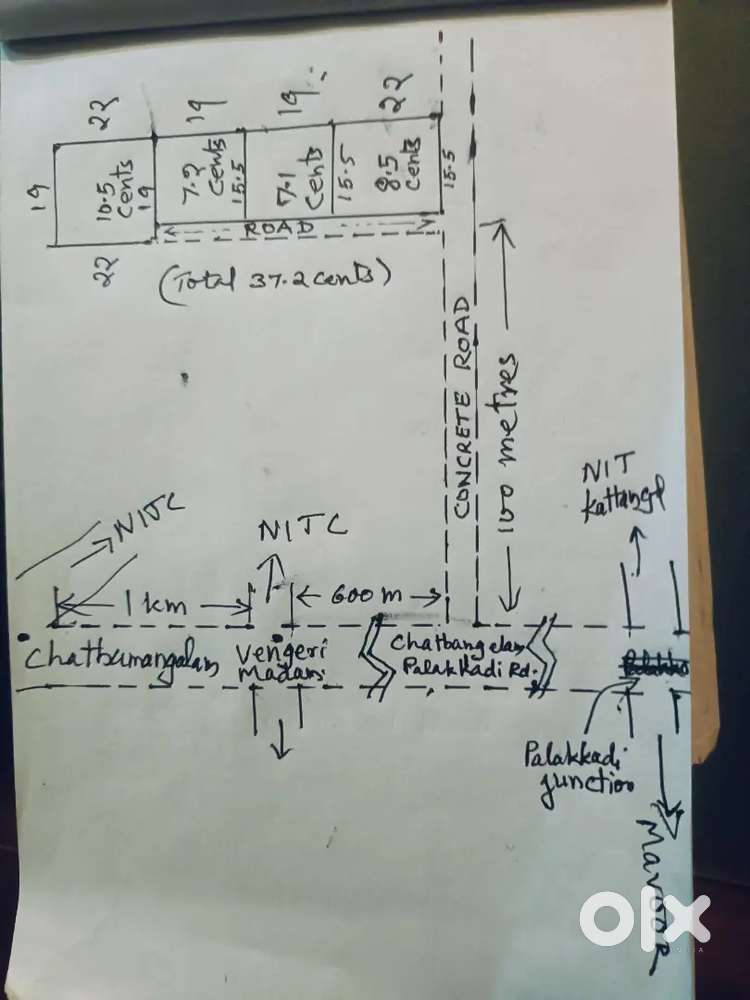 22
19
19
22
19
10.5
Cents
19
7.2
Cents
15.5
7.1
Cents
15.5
8.5
Cents
15.5
ROAD
22
(Total 37.2 cents)
CONCRETE ROAD
100 metres
NIT
Kattangl
NITC
NITC
1 km
600 m
Chathamangalam
Vengeri
Madam
Chathangalam
Palakkadi Rd.
Palakkadi
junction
Mavoor
olx
INDIA